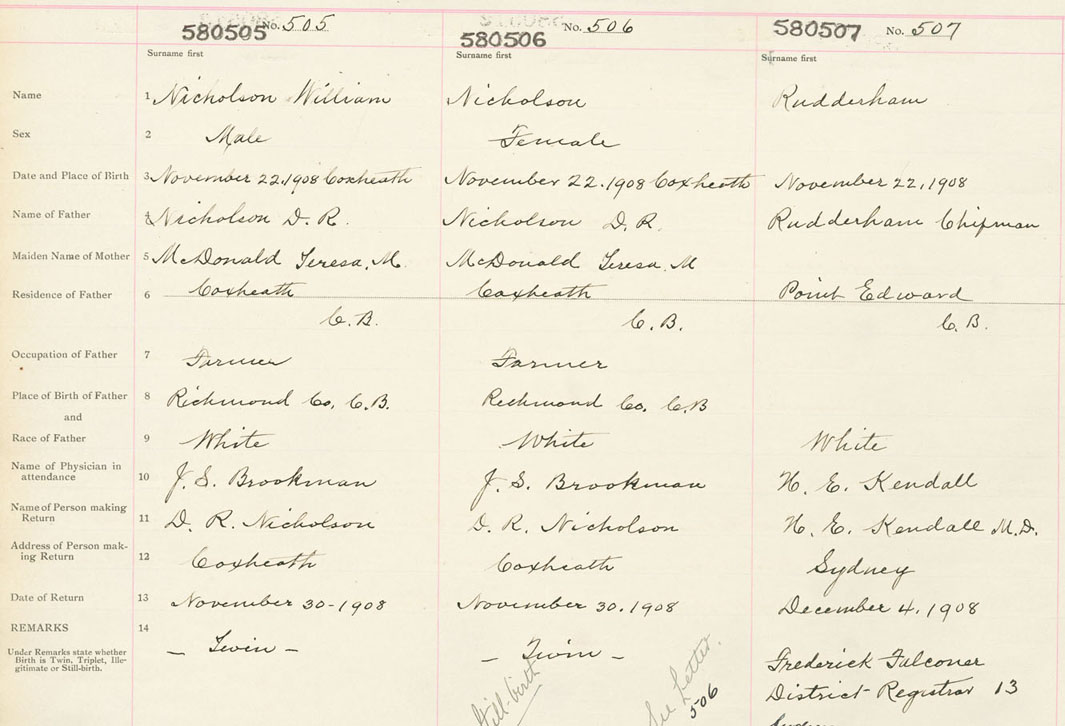 580505 No. 505 580506 No. 506 580507 No. 507
Surname first Surname first Surname first
Name 1 Nicholson William Nicholson Rudderham
Sex 2 Male Female
Date and Place of Birth 3 November 22, 1908 Coxheath November 22, 1908 Coxheath November 22, 1908
Name of Father 4 Nicholson D. R. Nicholson D. R. Rudderham Chipman
Maiden Name of Mother 5 McDonald Teresa. M. McDonald Teresa. M
Residence of Father 6 Coxheath Coxheath Point Edward
C. B. C. B. C. B.
Occupation of Father 7 Farmer Farmer
Place of Birth of Father 8 Richmond Co, C. B. Richmond Co, C. B
and
Race of Father 9 White White White
Name of Physician in
attendance 10 J. S. Brookman J. S. Brookman H. E. Kendall
Name of Person making
Return 11 D. R. Nicholson D. R. Nicholson H. E. Kendall M.D.
Address of Person mak-
ing Return 12 Coxheath Coxheath Sydney
Date of Return 13 November 30-1908 November 30, 1908 December 4, 1908
REMARKS 14
Under Remarks state whether
Birth is Twin, Triplet, Ille-
gitimate or Still-birth.
– Twin – – Twin – Frederick Falconer
District Registrar 13
Still-birth See Letter.
506